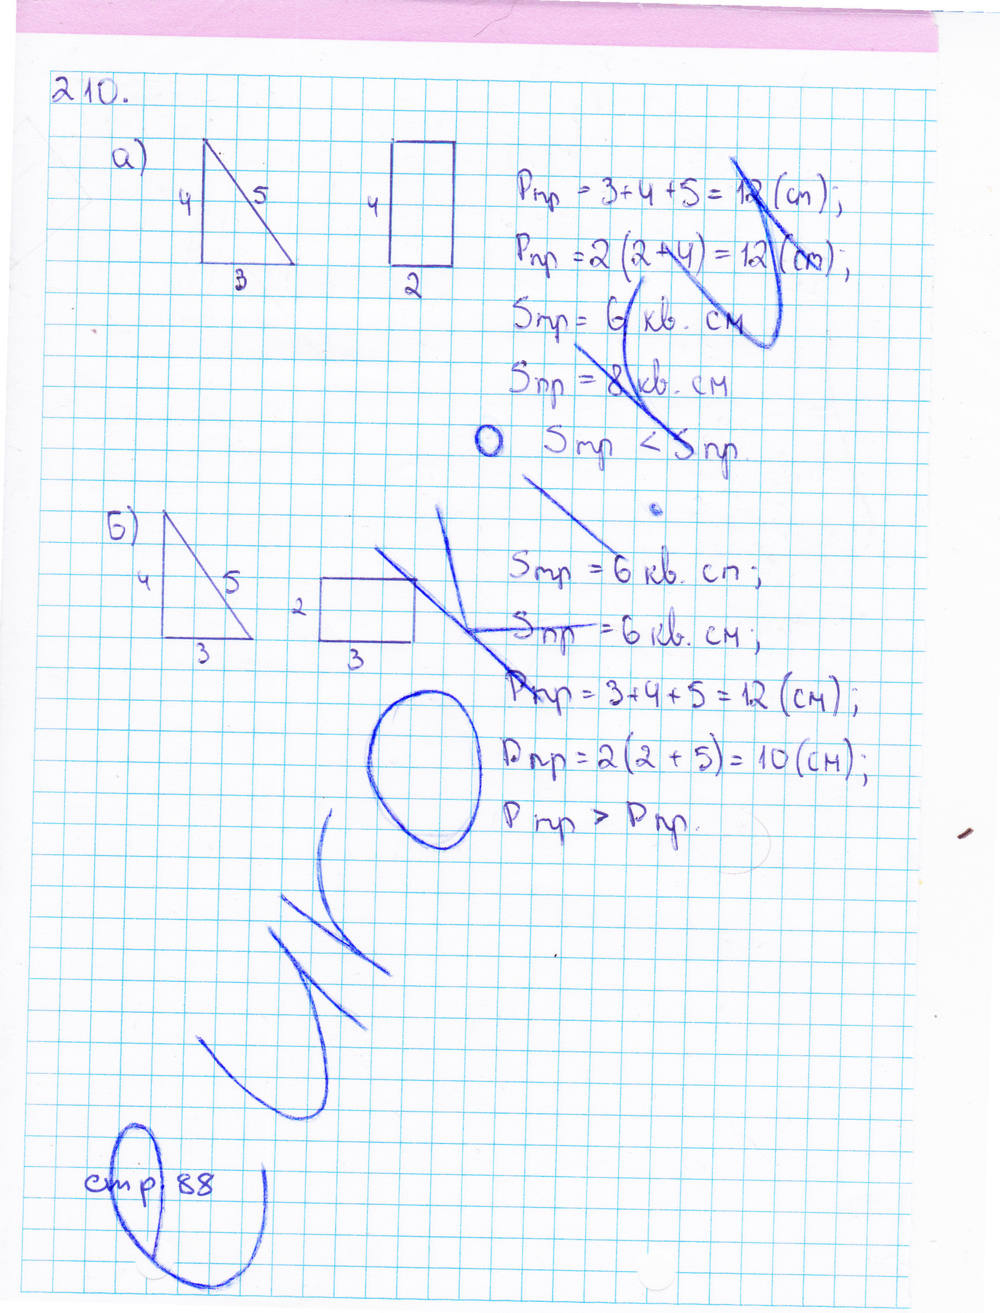 210.
а)
4
5
3
4
2
Pтр = 3+4+5 = 12 (см);
Pпр = 2 (2+4) = 12 (см);
Sтр = 6 кв. см
Sпр = 8 кв. см
Sтр < Sпр.
Б)
4
5
3
2
3
Sтр = 6 кв. см;
Sпр = 6 кв. см;
Pтр = 3+4+5 = 12 (см);
Pпр = 2(2+5) = 10 (см);
Pтр > Pпр.
стр. 88